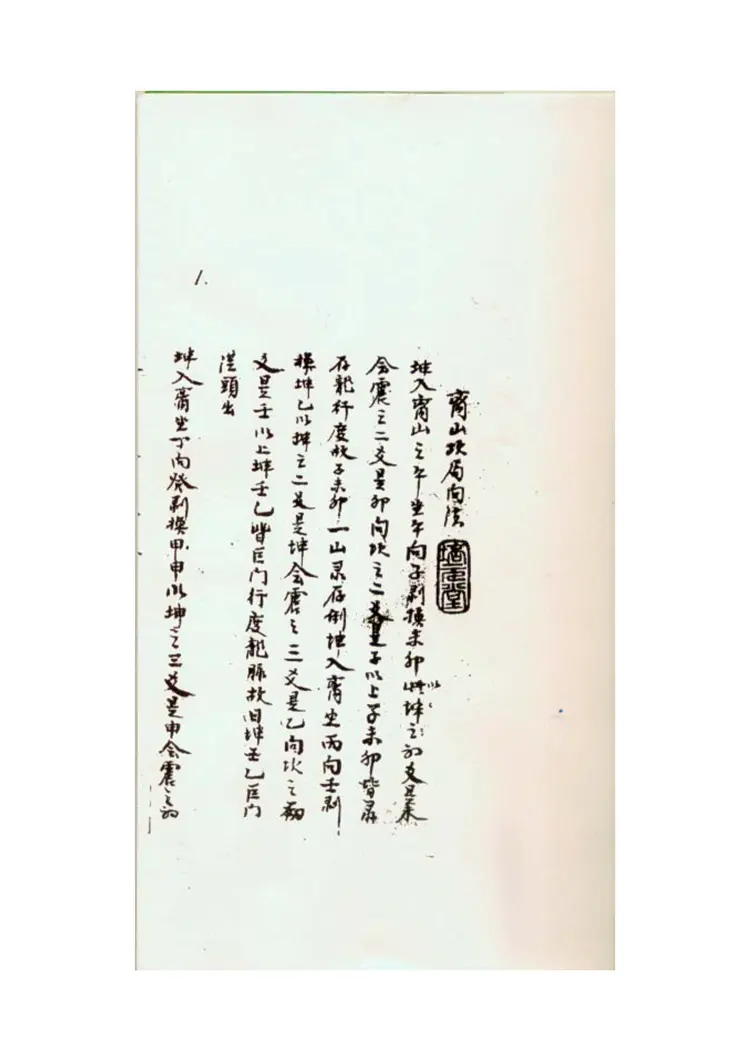 离山坎局向法
坤入离山之午坐午向子剥换未卯以坤之初爻是未
会震之二爻是卯向坎之二爻是子以上子未卯皆录
存龙行度故子未卯一山录存例坤入离坐丙向壬剥
换坤乙以坤之二爻是坤会震之三爻是乙向坎之初
爻是壬以上坤壬乙皆巨门行度龙脉故旧坤壬乙巨门
头出
坤入离坐丁向癸剥换甲申以坤之三爻是申会震之初
1.